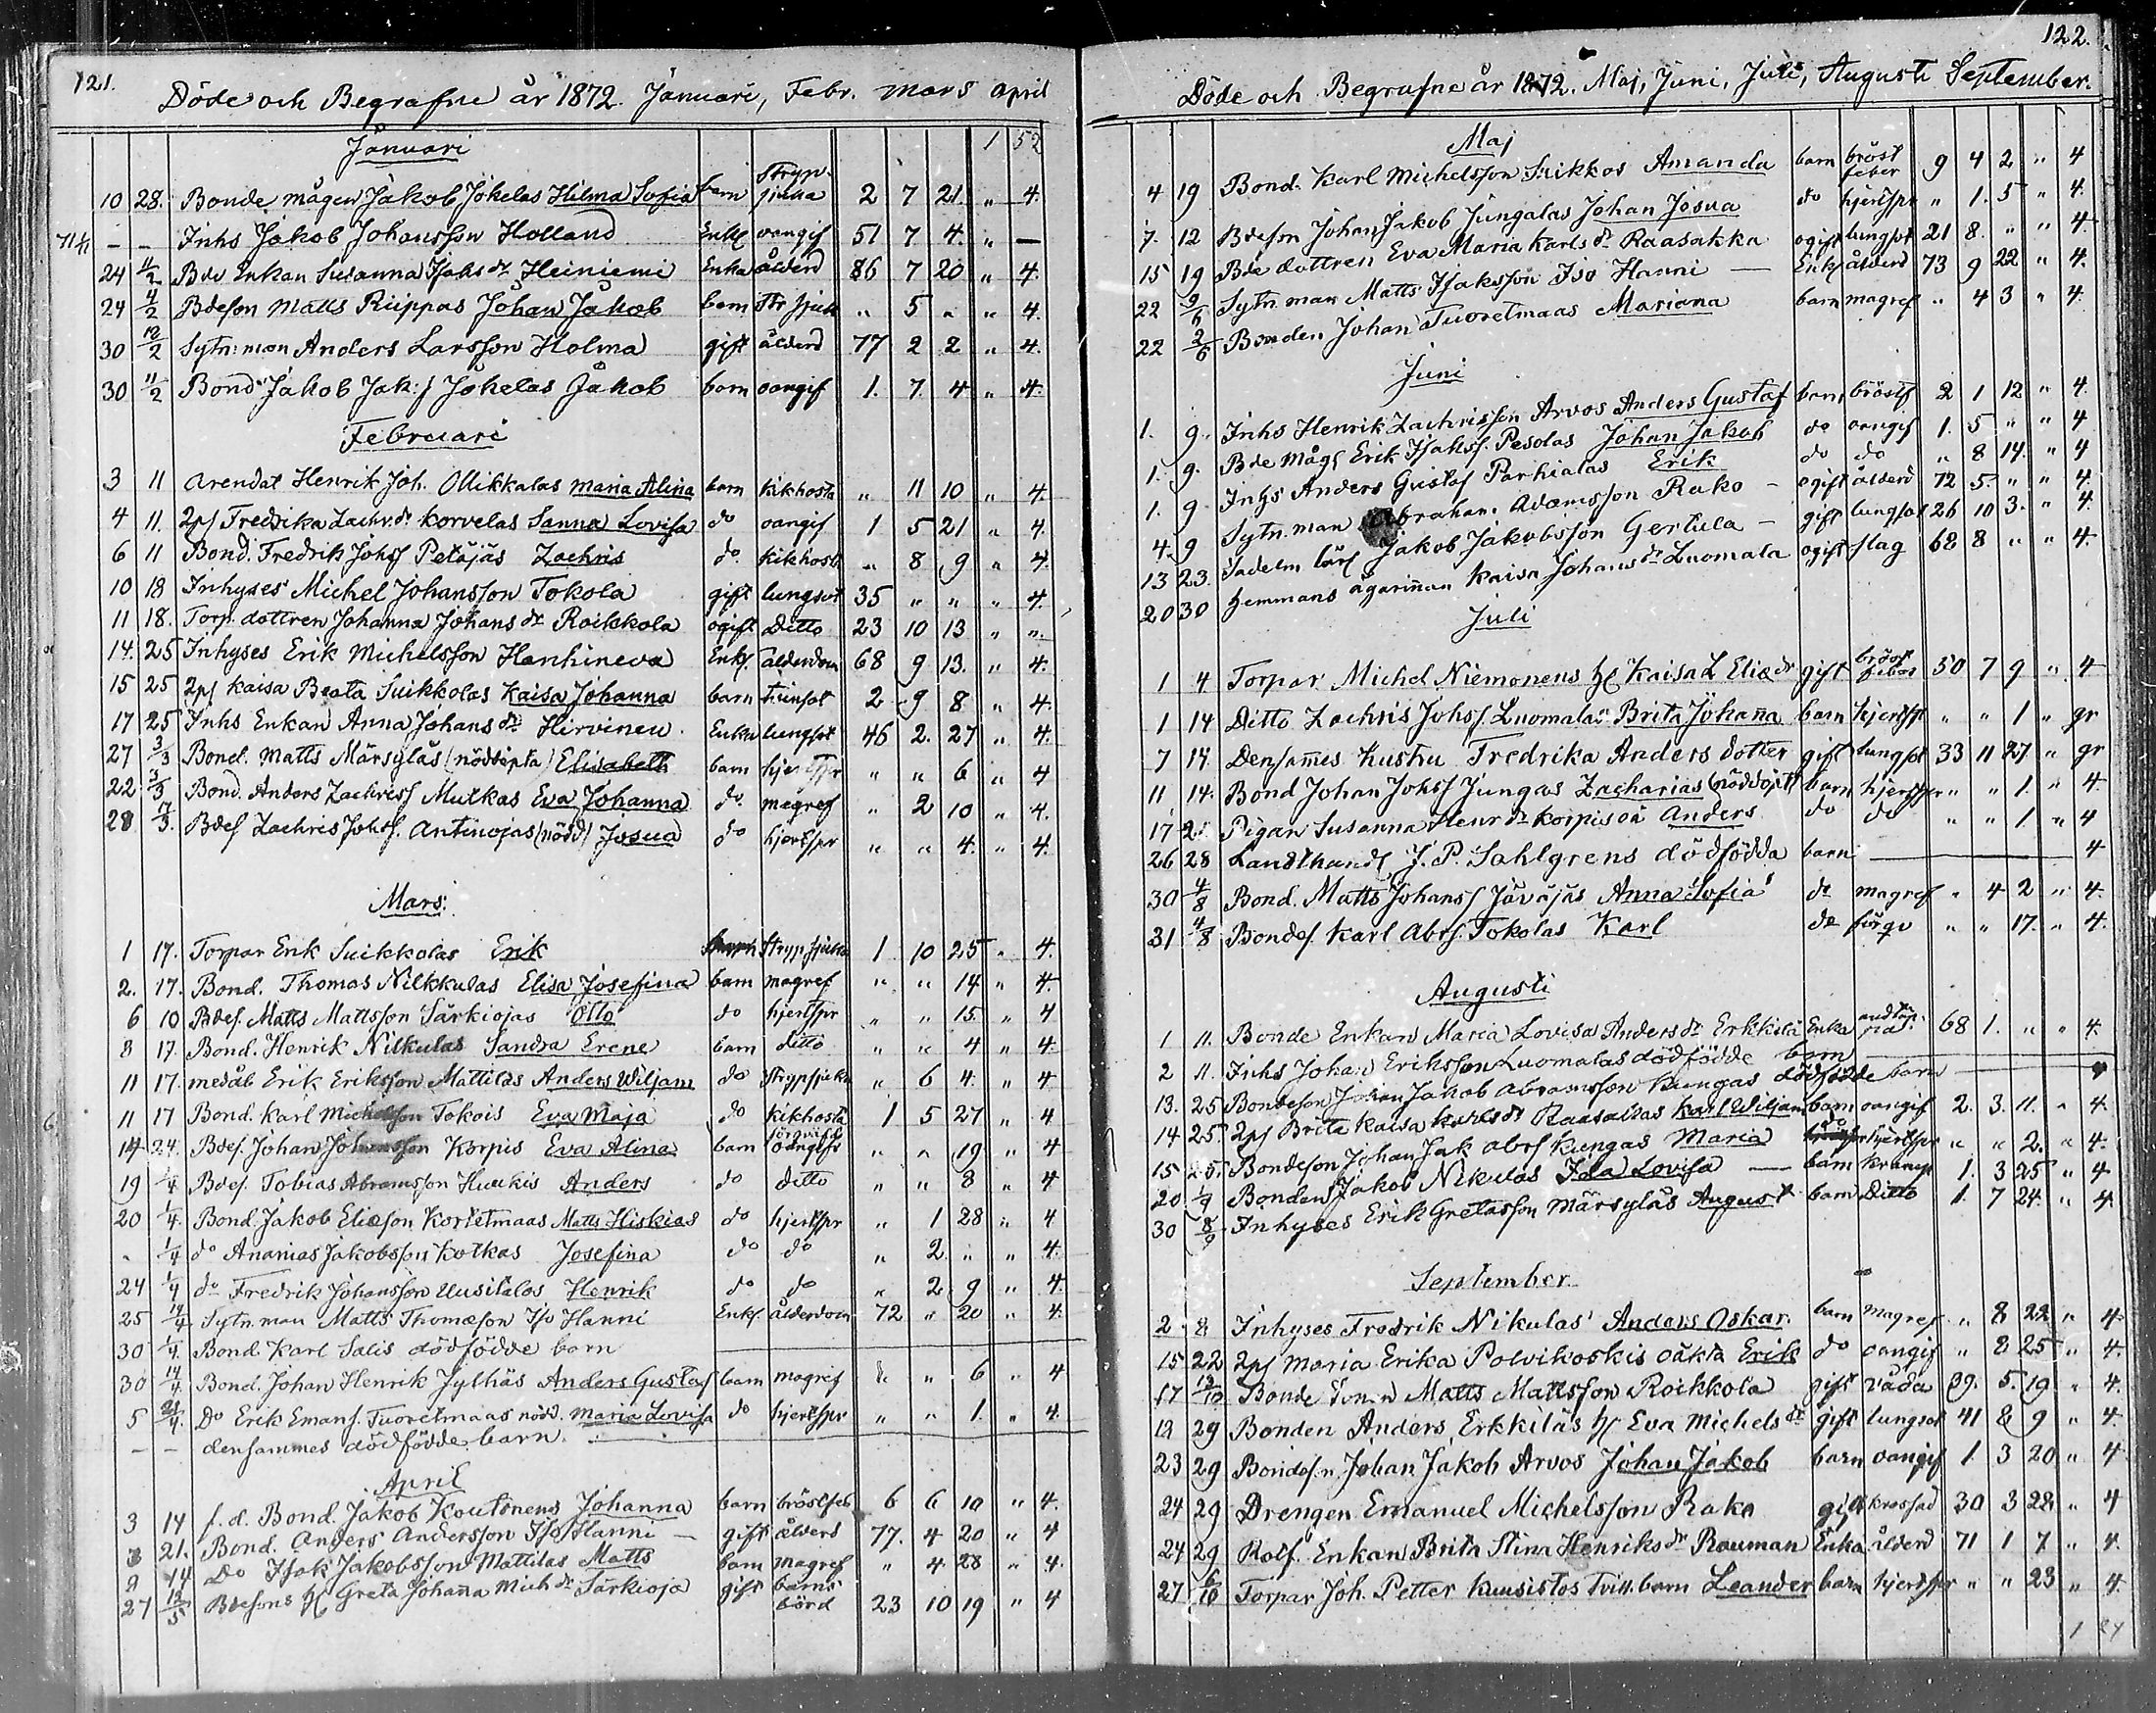 121.
Döde och Begrafne år 1872. Januari, Febr. Mars April
Januari 1 52
10 28. Bonde mågen Jakob Jokelas Hilma Sofia barn Stryp-sjuka 2 7 21. " 4.
71 4/1 - - Inhs Jakob Johansson Holland Enkl oangif 51 7 4. " —
24 11/2 Bde Enkan Susanna Isaks dr Heiniemi Enka ålderd 86 7 20 " 4.
24 4/2 Bdeson Matts Riippas Johan Jakob barn Str sjuk " 5 " " 4.
30 12/2 Sytn: man Anders Larsson Holma gift ålderd 77 2 2 " 4.
30 11/2 Bond Jakob Jak: s Jokelas Jakob barn oangif 1. 7 4 " 4.
Februari
3 11 Arendat Henrik Joh. Ollikkalas Maria Alina barn kikhosta " 11 10 " 4.
4 11. 2ps Fredrika Zachr.dr Korvelas Sanna Lovisa do oangif 1 5 21 " 4.
6 11 Bond. Fredrik Johss Petäjäs Zachris do. kikhost " 8 9 " 4.
10 18 Inhyses Michel Johansson Tokola gift lungsot 35 " " " 4.
11 18. Torp. dottren Johanna Johans dr Roikkola ogift Ditto 23 10 13 " ".
14. 25 Inhyses Erik Michelsson Hanhineva Enkl. ålderdom 68 9 13. " 4.
15 25 2ps Kaisa Beata Suikkolas Kaisa Johanna barn 2 9 8 " 4.
17 25 Inhs Enkan Anna Johans dr Hirvinen. Enka lungsot 46 2. 27 " 4.
27 3/3 Bond. Matts Märsyläs (nöddöpta) Elisabeth barn hjertspr " " 6 " 4
22 3/3 Bond. Anders Zachriss Mutkas Eva Johanna do. magref " 2 10 " 4.
28 17/3. Bdes Zachris Johss. Antinojas (nödd) Josua do hjertspr " " 4. " 4.
Mars:
1 17. Torpar Erik Suikkolas Erik barn Strypsjuka 1 10 25 " 4.
2. 17. Bond. Thomas Nilkkulas Elisa Josefina barn magref " " 14 " 4.
6 10 Bdes. Matts Mattsson Särkiojas Otto do hjertspr " " 15. " 4
8 17. Bond. Henrik Nilkulas Sandra Erene barn ditto " " 4 " 4.
11 17. medåb Erik Eriksson Mattilas Anders Wiljam do strypsjuka " 6 4. " 4
11 17 Bond. Karl Michelsson Tokois Eva Maja do kikhosta 1 5 27 " 4
14 24. Bdes. Johan Johansson Korpis Eva Alina barn oangifs " " 19 " 4
19 1/4 Bdes. Tobias Abramsson Huukis Anders do ditto " " 8 " 4
20 1/4. Bond. Jakob Eliæson Kortetmaas Matts Hiskias do hjertspr " 1 28 " 4
" 1/4 do Ananias Jakobsson Kotkas Josefina do do " 2 " " 4.
24 1/4 do Fredrik Johansson Uusitalos Henrik do do " 2 9 " 4.
25 14/4 Sytn. man Matts Thomæson Iso Hanni Enkl. ålderdom 72 " 20 " 4.
30 1/4. Bond. Karl Salis dödfödde barn
30 14/4. Bond. Johan Henrik Jylhäs Anders Gustaf barn magref " " 6 " 4
5 21/4. Do Erik Emans. Tuoretmaas nöd. Maria Lovisa do hjertspr " " 1. " 4.
- - densammes dödfödde barn.
April
3 14 f.d. Bond. Jakob Koutonens Johanna barn bröstfeb 6 6 10 " 4.
3 21. Bond. Anders Andersson Iso Hanni — gift ålderd 77. 4 20 " 4
9 14 Do Isak Jakobsson Mattilas Matts barn magref " 4 28 " 4.
27 12/5 Bdesons h: Greta Johanna Mich dr Särkioja gift barnsbörd 23 10 19 " 4
122.
Döde och Begrafne år 1872. Maj, Juni, Juli, Augusti September.
Maj
4 19 Bond. Karl Michelsson Suikkos Amanda barn bröst feber 9 4 2 " 4
7. 12 Bdeson Johan Jakob Jungalas Johan Josua do hjertspr " 1. 5 " 4.
15 19 Bde dottren Eva Maria Karls dr Raasakka ogift lungsot 21 8. " " 4.
22 9/6 Sytn. man Matts Isaksson Iso Hanni — Enkl ålderd 73 9 22 " 4.
22 2/6 Bonden Johan Tuoretmaas Mariana barn magref " 4 3 " 4.
Juni
1. 9. Inhs Henrik Zachrisson Arvos Anders Gustaf barn bröstf 2 1 12 " 4.
1. 9. Bde mågs Erik Isakss. Pesolas Johan Jakob do oangif 1. 5 " " 4
1. 9. Inhs Anders Gustaf Parhialas Erik do do " 8 14. " 4
4. 9 Sytn. man Abraham Adamsson Rako - ogift ålderd 72 5. " " 4.
13 23. Sadelm lärl Jakob Jakobsson Gertula - gift lungsot 26 10 3. " 4.
20 30 Hemmans ägarinnan Kaisa Johans dr Luomala ogift slag 68 8 " " 4.
Juli
1 4 Torpar. Michel Niemonens h: Kaisa L Eliædr gift bröst feber 50 7 9 " 4
1 14 Ditto Zachris Johss. Luomalas Brita Johanna barn hjertspr " " 1 " gr
7 14 Densammes Hustru Fredrika Anders dotter gift lungsot 33 11 27 " gr
11 14. Bond Johan Johss Jungas Zacharias (nöddöpt) barn hjertspr " " 1. " 4.
17 21 Pigan Susanna Henr dr Korpisoä Anders do do " " 1. " 4
26 28 Landthandl. J. P. Sahlgrens dödfödda barn — 4
30 4/8 Bond. Matts Johanss Jäväjäs Anna Sofia do magref " 4 2 " 4.
31 4/8 Bondes. Karl Abrs. Tokolas Karl do förgv " " 17. " 4.
Augusti
1 11. Bonde Enkan Maria Lovisa Anders dr Erkkilä Enka 68 1. " " 4.
2 11. Inhs Johan Eriksson Luomalas dödfödde barn
13. 25 Bondeson Johan Jakob Abramsson Kungas dödfödde barn
14 25. 2ps Brita Kaisa Karlsdr Raasakkas Karl Wiljam barn oangif 2. 3. 11. " 4.
15 25. Bondeson Johan Jak Abrs Kungas Maria hjertspr " " 2. " 4.
20 1/9 Bondens Jakob Nikulas Ida Lovisa — barn kramp 1. 3 25 " 4
30 8/9 Inhyses Erik Gretasson Märsyläs August barn Ditto 1. 7 24. " 4.
September
2 8 Inhyses Fredrik Nikulas Anders Oskar. barn magref " 8 22 " 4
15 22 2ps Maria Erika Polvikoskis oäkta Erik do oangif " 8 25 " 4.
17 13/10 Bonde Sonen Matts Mattsson Roikkola gift våda 39. 5. 19 " 4.
19 29 Bonden Anders Erkkiläs h: Eva Michels dr gift lungsot 41 8 9 " 4
23 29 Bondeson Johan Jakob Arvos Johan Jakob barn oangif 1 3 20 " 4
24 29 Drengen Emanuel Michelsson Rako gift krossad 30 3 28. " 4
24 29 Rotf. Enkan Brita Stina Henriks dr Rauman Enka ålderd 71 1 7 " 4.
27 6/10 Torpar Joh. Petter Kuusistos Tvill. barn Leander barn hjertspr " " 23 " 4.
1 84